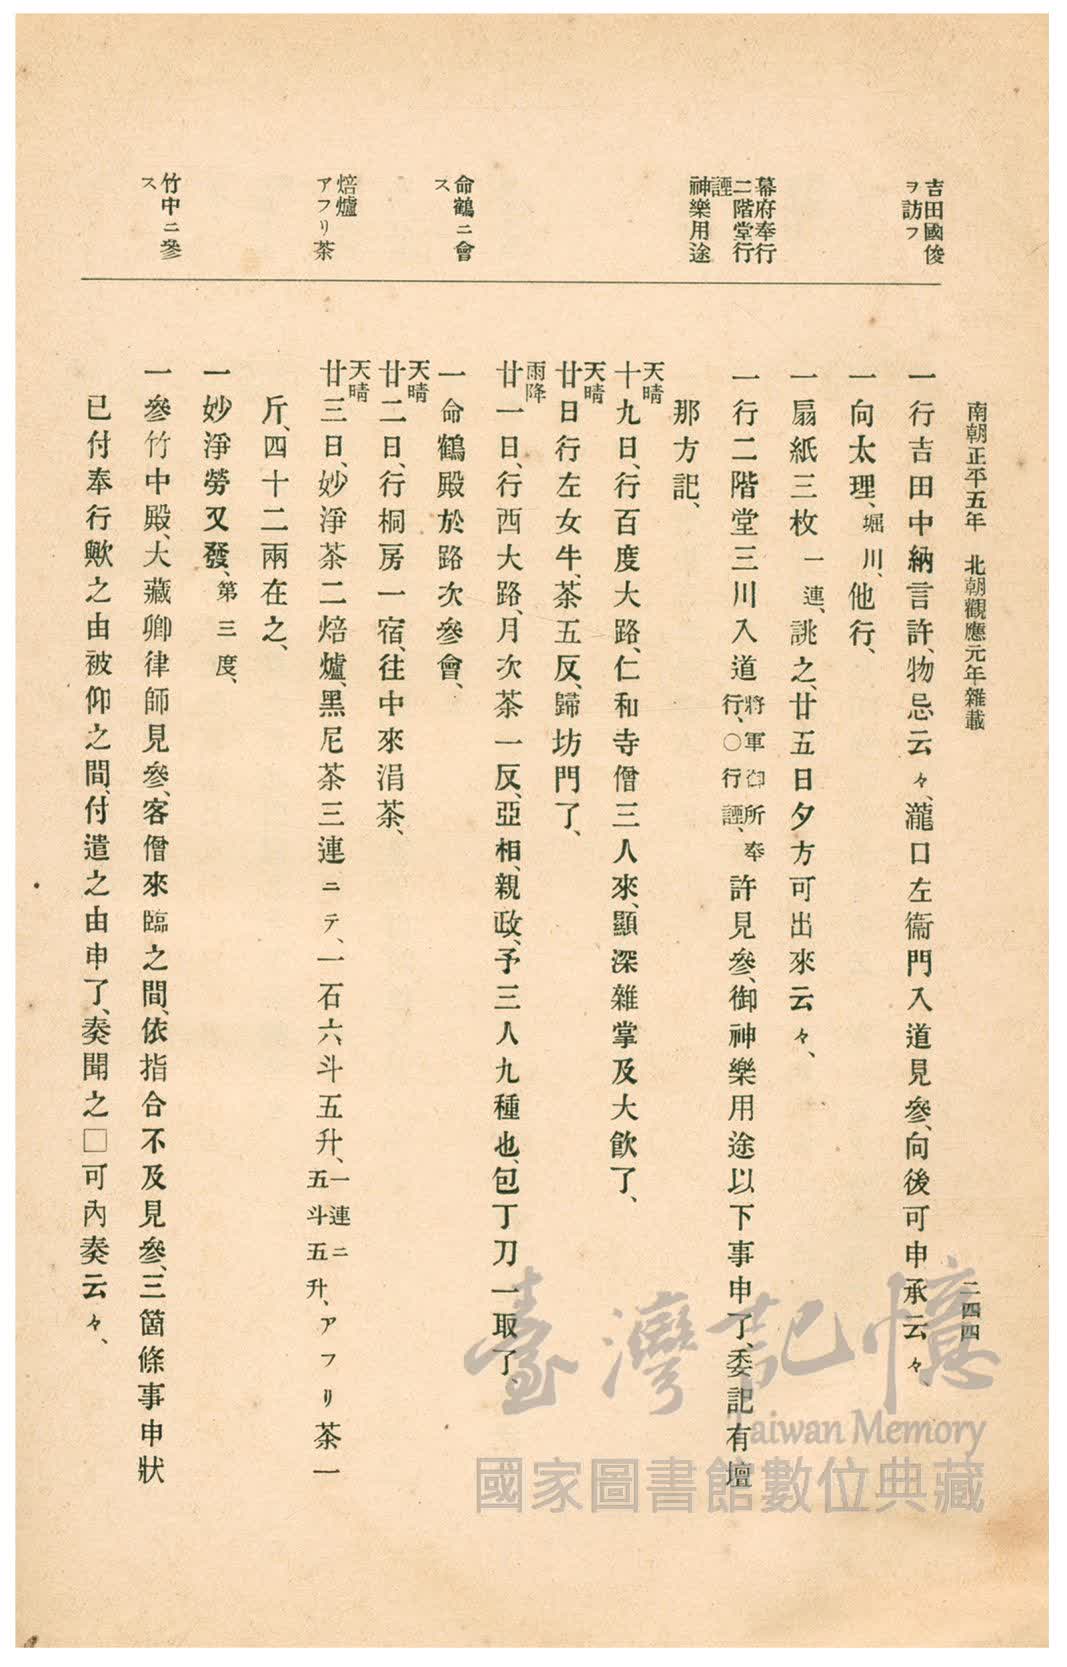 南朝正平五年　北朝觀應元年雜載
二四四
吉田國俊
ヲ訪フ
幕府奉行
二階堂行
諲
神樂用途
命鶴ニ會
ス
焙爐
アフリ茶
竹中ニ參
ス
一行吉田中納言許、物忌云々、瀧口左衞門入道見參、向後可申承云々、
一向太理、堀川、他行、
一扇紙三枚一連、誂之、廿五日夕方可出來云々、
一行二階堂三川入道將軍御所奉行、〇行諲、許見參、御神樂用途以下事申了、委記有壇
那方記、
天晴
十九日、行百度大路、仁和寺僧三人來、顯深雜掌及大飮了、
天晴
廿日行左女牛、茶五反、歸坊門了、
雨降
廿一日、行西大路、月次茶一反、亞相、親政、予三人九種也、包丁刀一取了、
一命鶴殿於路次參會、
天晴
廿二日、行桐房一宿、往中來涓茶、
天晴
廿三日、妙淨茶二焙爐、黑尼茶三連ニテ、一石六斗五升、一連ニ五斗五升、アフリ茶一
斤、四十二兩在之、
一妙淨勞又發、第三度、
一參竹中殿、大藏卿律師見參、客僧來臨之間、依指合不及見參、三箇條事申狀
已付奉行歟之由被仰之間、付遣之由申了、奏聞之□可內奏云々、
臺灣記憶
Taiwan Memory
國家圖書館數位典藏